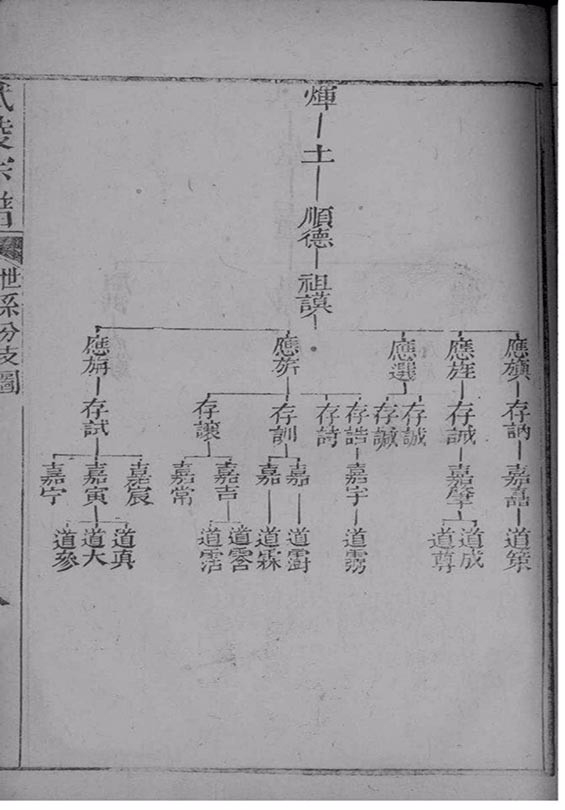 煇
土
順德
祖謨
應旟 應旌 應選 應旂 應旃
存訥 存誠 存誠 存諴 存誥 存詩 存訓 存讓 存試
嘉喆 嘉肇 嘉宇 嘉 嘉 嘉吉 嘉常 嘉宸 嘉寅 嘉宁
道策 道成 道尊 道霧 道霨 道霖 道霑 道真 道大 道參
宗譜
世系分支圖